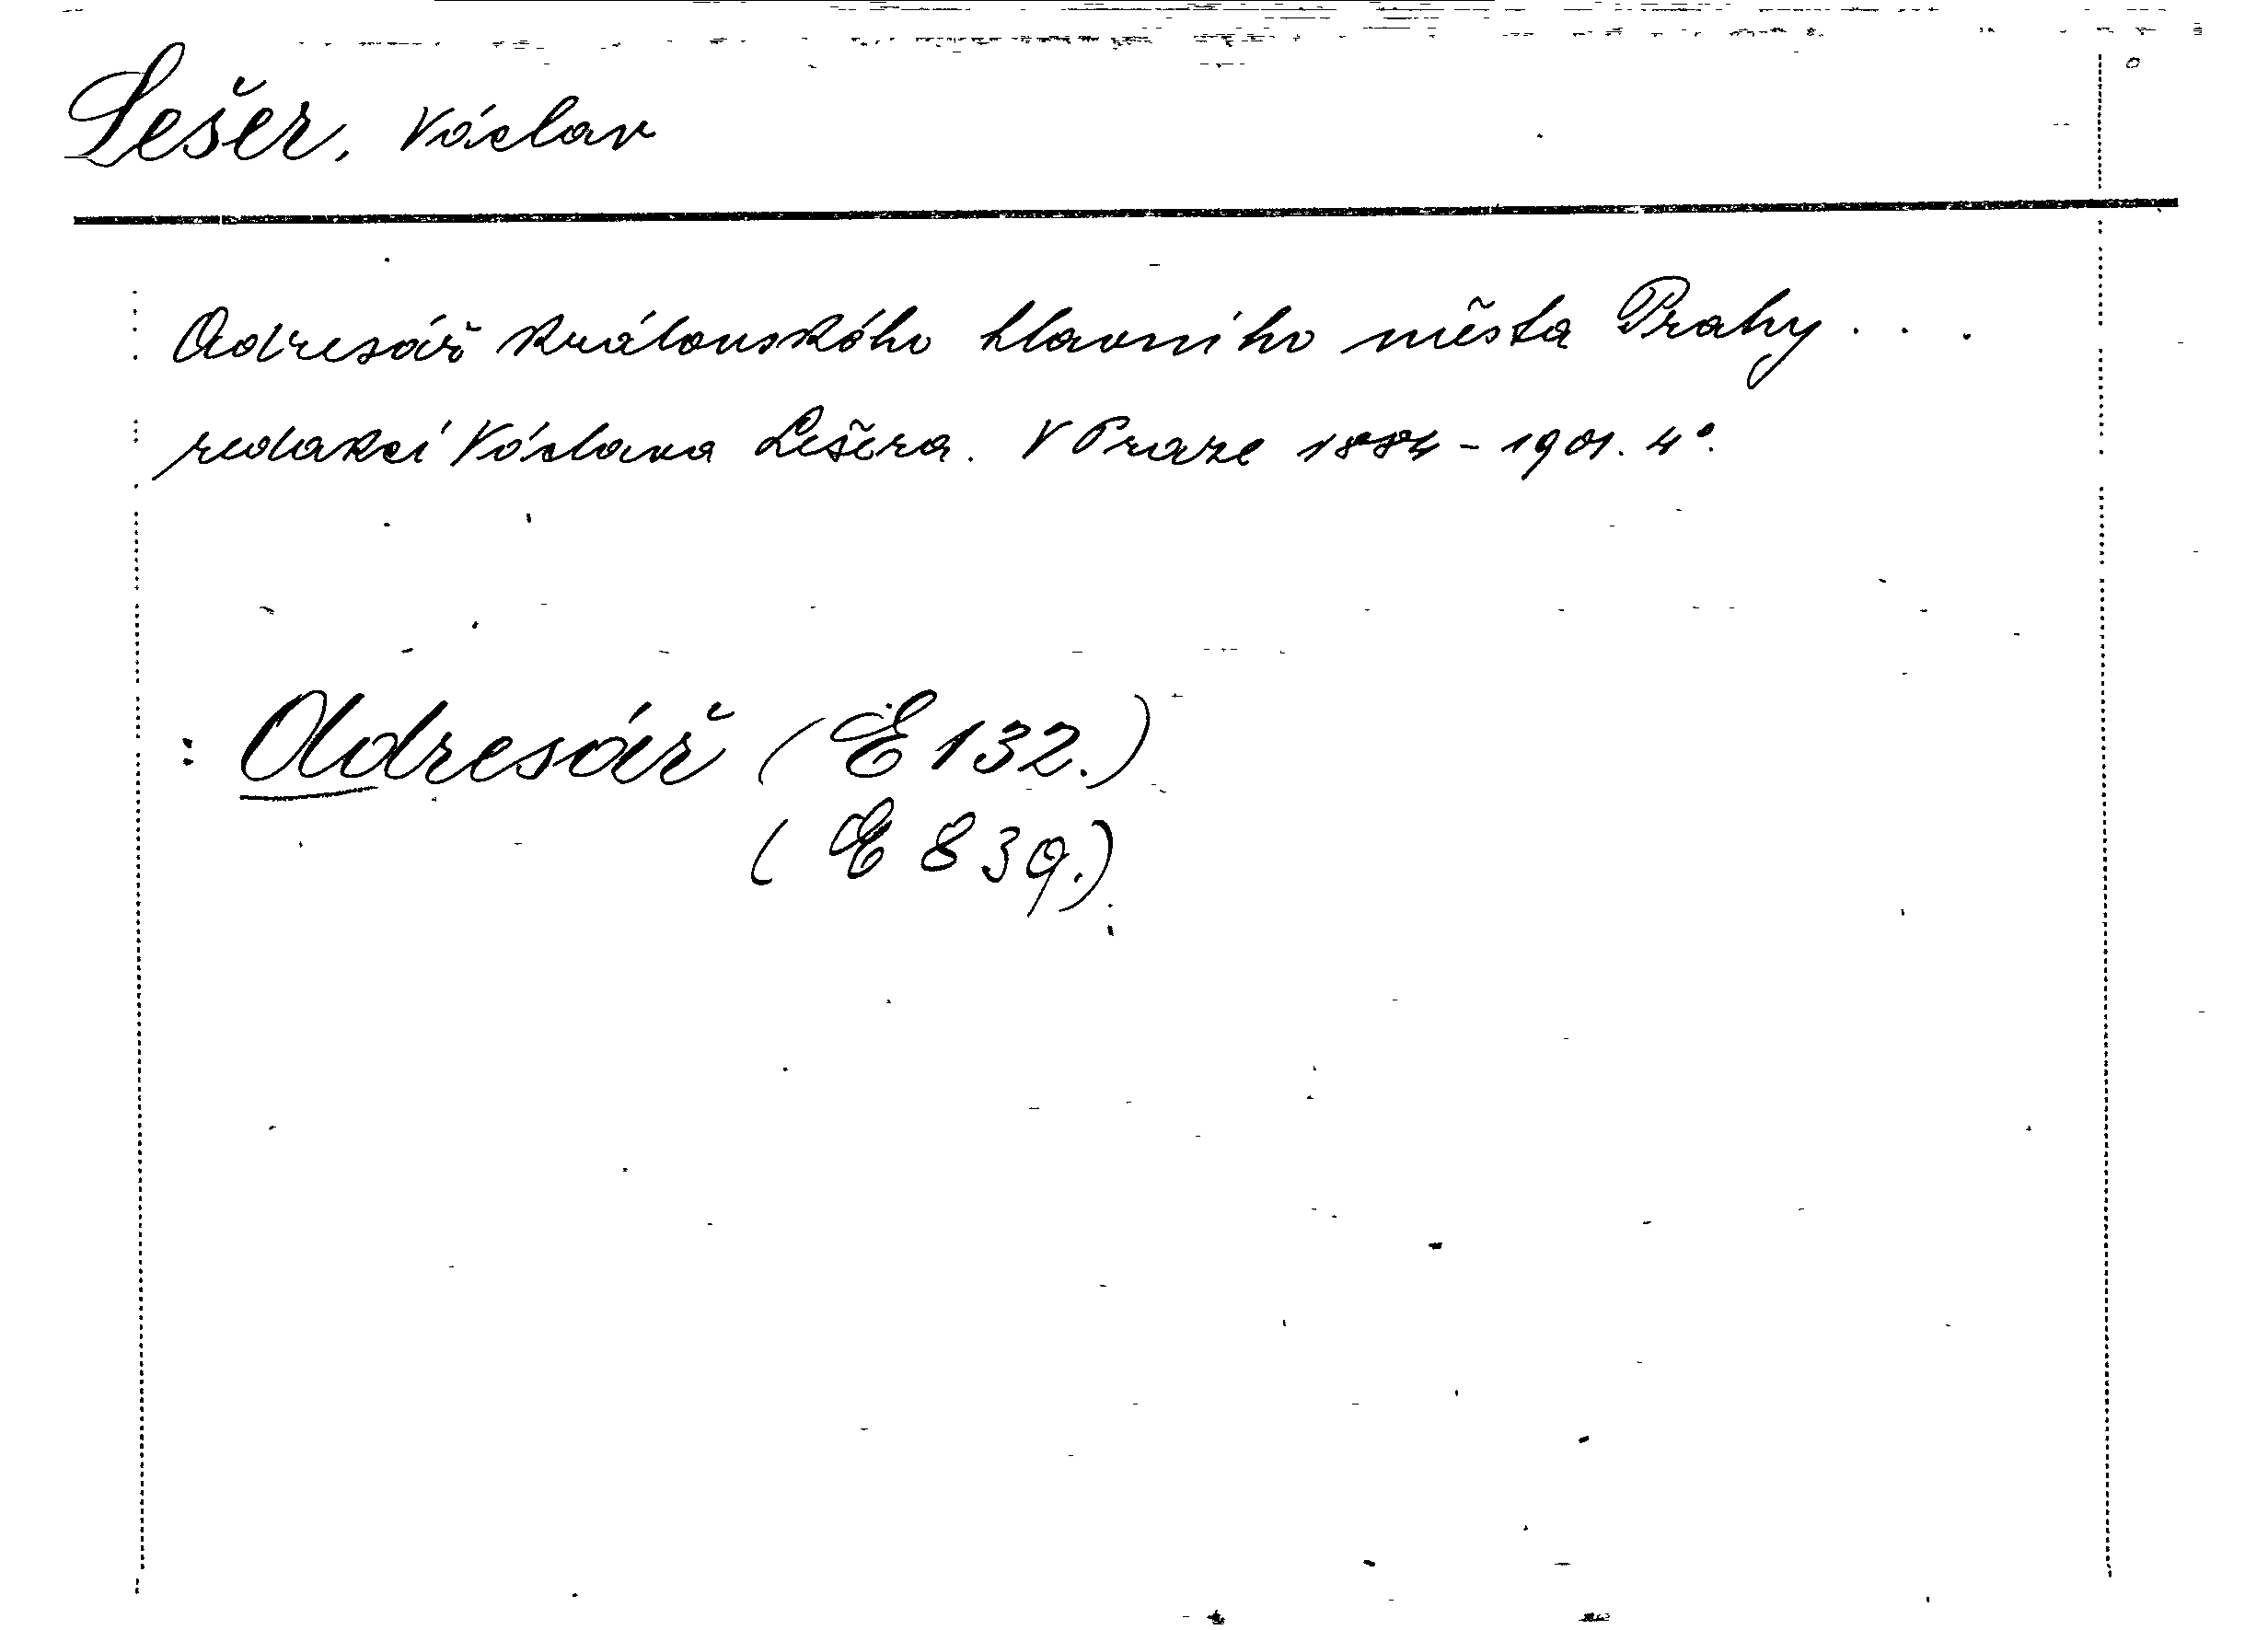 Lešer, Václav
Adresář královského hlavního města Prahy . . .
redakcí Václava Lešera. V Praze 1884 - 1901. 4°.
: Adresář (E 132.)
(E 839.)